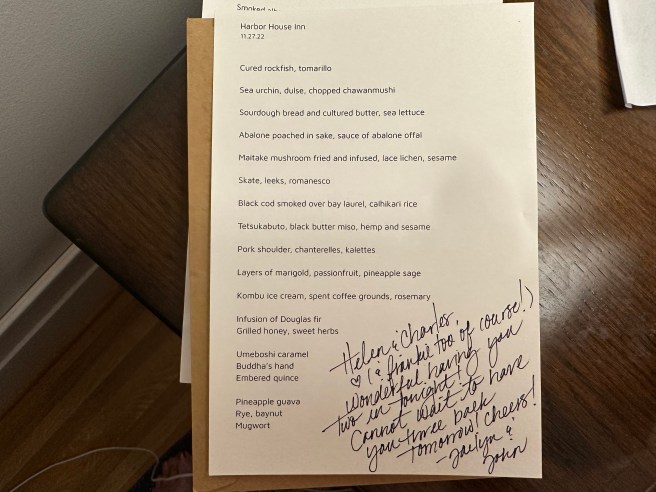 Smoked
Harbor House Inn
11.27.22
Cured rockfish, tomarillo
Sea urchin, dulse, chopped chawanmushi
Sourdough bread and cultured butter, sea lettuce
Abalone poached in sake, sauce of abalone offal
Maitake mushroom fried and infused, lace lichen, sesame
Skate, leeks, romanesco
Black cod smoked over bay laurel, calhikari rice
Tetsukabuto, black butter miso, hemp and sesame
Pork shoulder, chanterelles, kalettes
Layers of marigold, passionfruit, pineapple sage
Kombu ice cream, spent coffee grounds, rosemary
Infusion of Douglas fir
Grilled honey, sweet herbs
Umeboshi caramel
Buddha's hand
Embered quince
Pineapple guava
Rye, baynut
Mugwort
Helen & Charles
♡ (& frankie too of course!)
Wonderful having you
two in tonight!
Cannot wait to have
you three back
tomorrow! Cheers!
- Jaelyn &
John